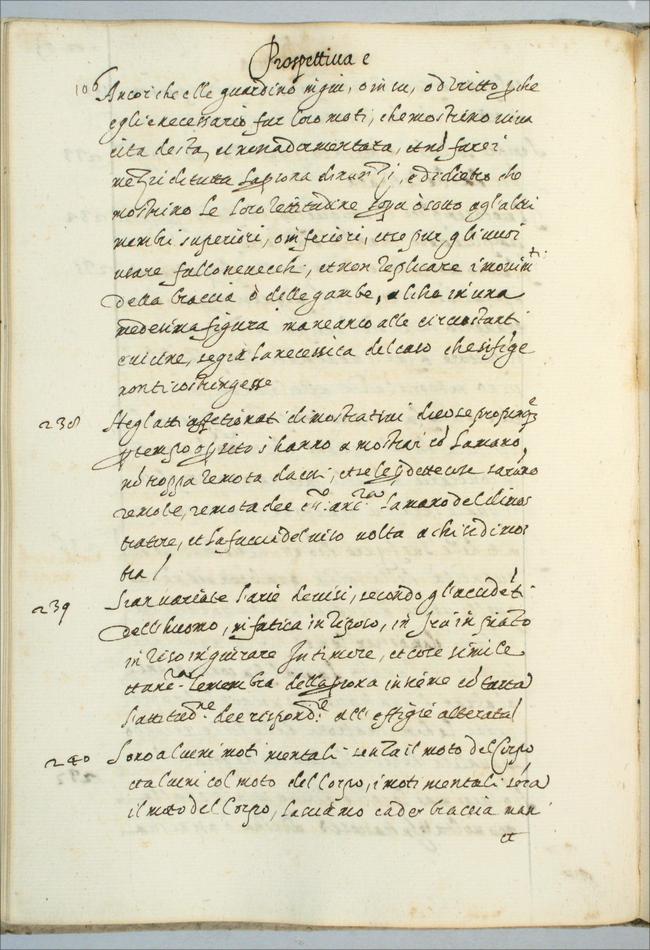 Prospettiua e
106
Ancor che elle guardino in giu, o in su, o diritto, per che
egli è necessario far loro moti, che mostrino viua-
cita desta, et non adormentata, et nõ fare i
mezzi di tutta la persona dinanzi, e di dietro che
mostrino le loro rettitudine sopra o sotto agl'altri
membri superiori, o inferiori, et se pur gli uuoi
usare fallo ne uecchi, et non replicare i mouimti:
della braccia ò delle gambe, nō in una
medesima figura ma e anco alle circostanti
e uicine, se gia la necessita del caso che si fige
non ti costringesse
238 Negl'atti affetionati dimostratiui di cose propinque
per tempo o per sito s'hanno a mostrar cõ la mano
nõ troppo remota da essi, et se le predette cose saranno
remote, remota dee ess.re anco la mano del dimos
tratore, et la faccia del uiso uolta a chi si dimos
tra /
239 Sian uariate l'arie de uisi, secondo gl'accidẽti
dell'huomo, in fatica in riposo, in ira in pianto
in riso in gridare in timore, et cose simile
et anco le membra della persona insieme cõ tutta
l'attitud.ne dee respond.re all'effigie alterata /
240 Sono alcuni moti mentali senza il moto del Corpo
et alcuni col moto del Corpo, i moti mentali senza
il moto del Corpo, lasciano cader braccia man
et